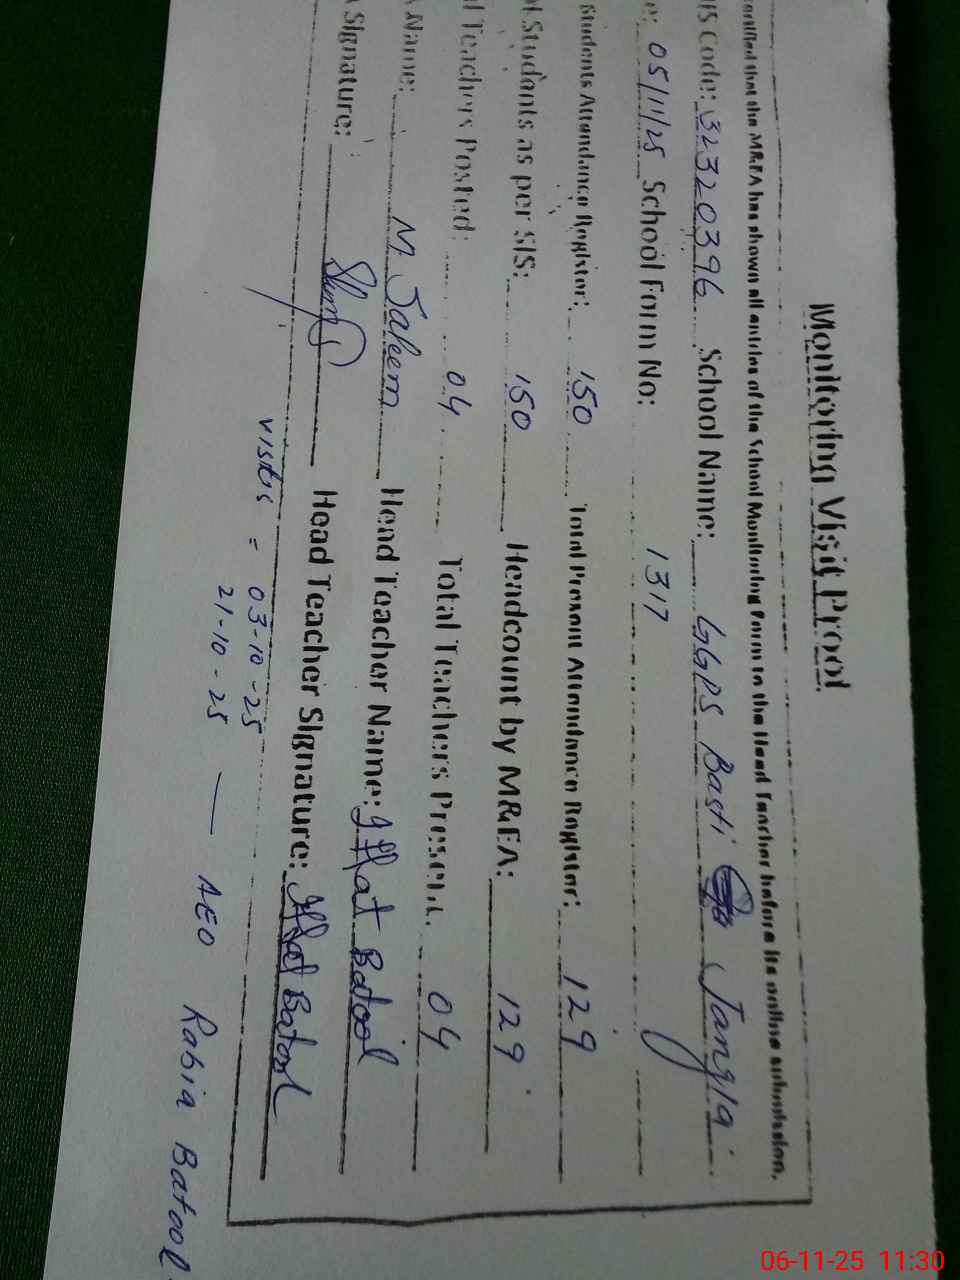 Monitoring Visit Proof
that the M&EA has shown all entries of the School Monitoring Form to the Head Teacher before its online submission.
IS Code: 32320396 School Name: GGPS Basti Jangla
e: 05/11/25 School Form No: 1317
Students Attendance Register: 150 Total Present Attendance Register: 129
Students as per SIS: 150 Headcount by M&EA: 129
l Teachers Posted: 04 Total Teachers Present: 04
Name: M Saleem Head Teacher Name: Iffat Batool
Signature: Head Teacher Signature: Iffat Batool
visits = 03-10-25
21-10-25 — AEO Rabia Batool
06-11-25 11:30